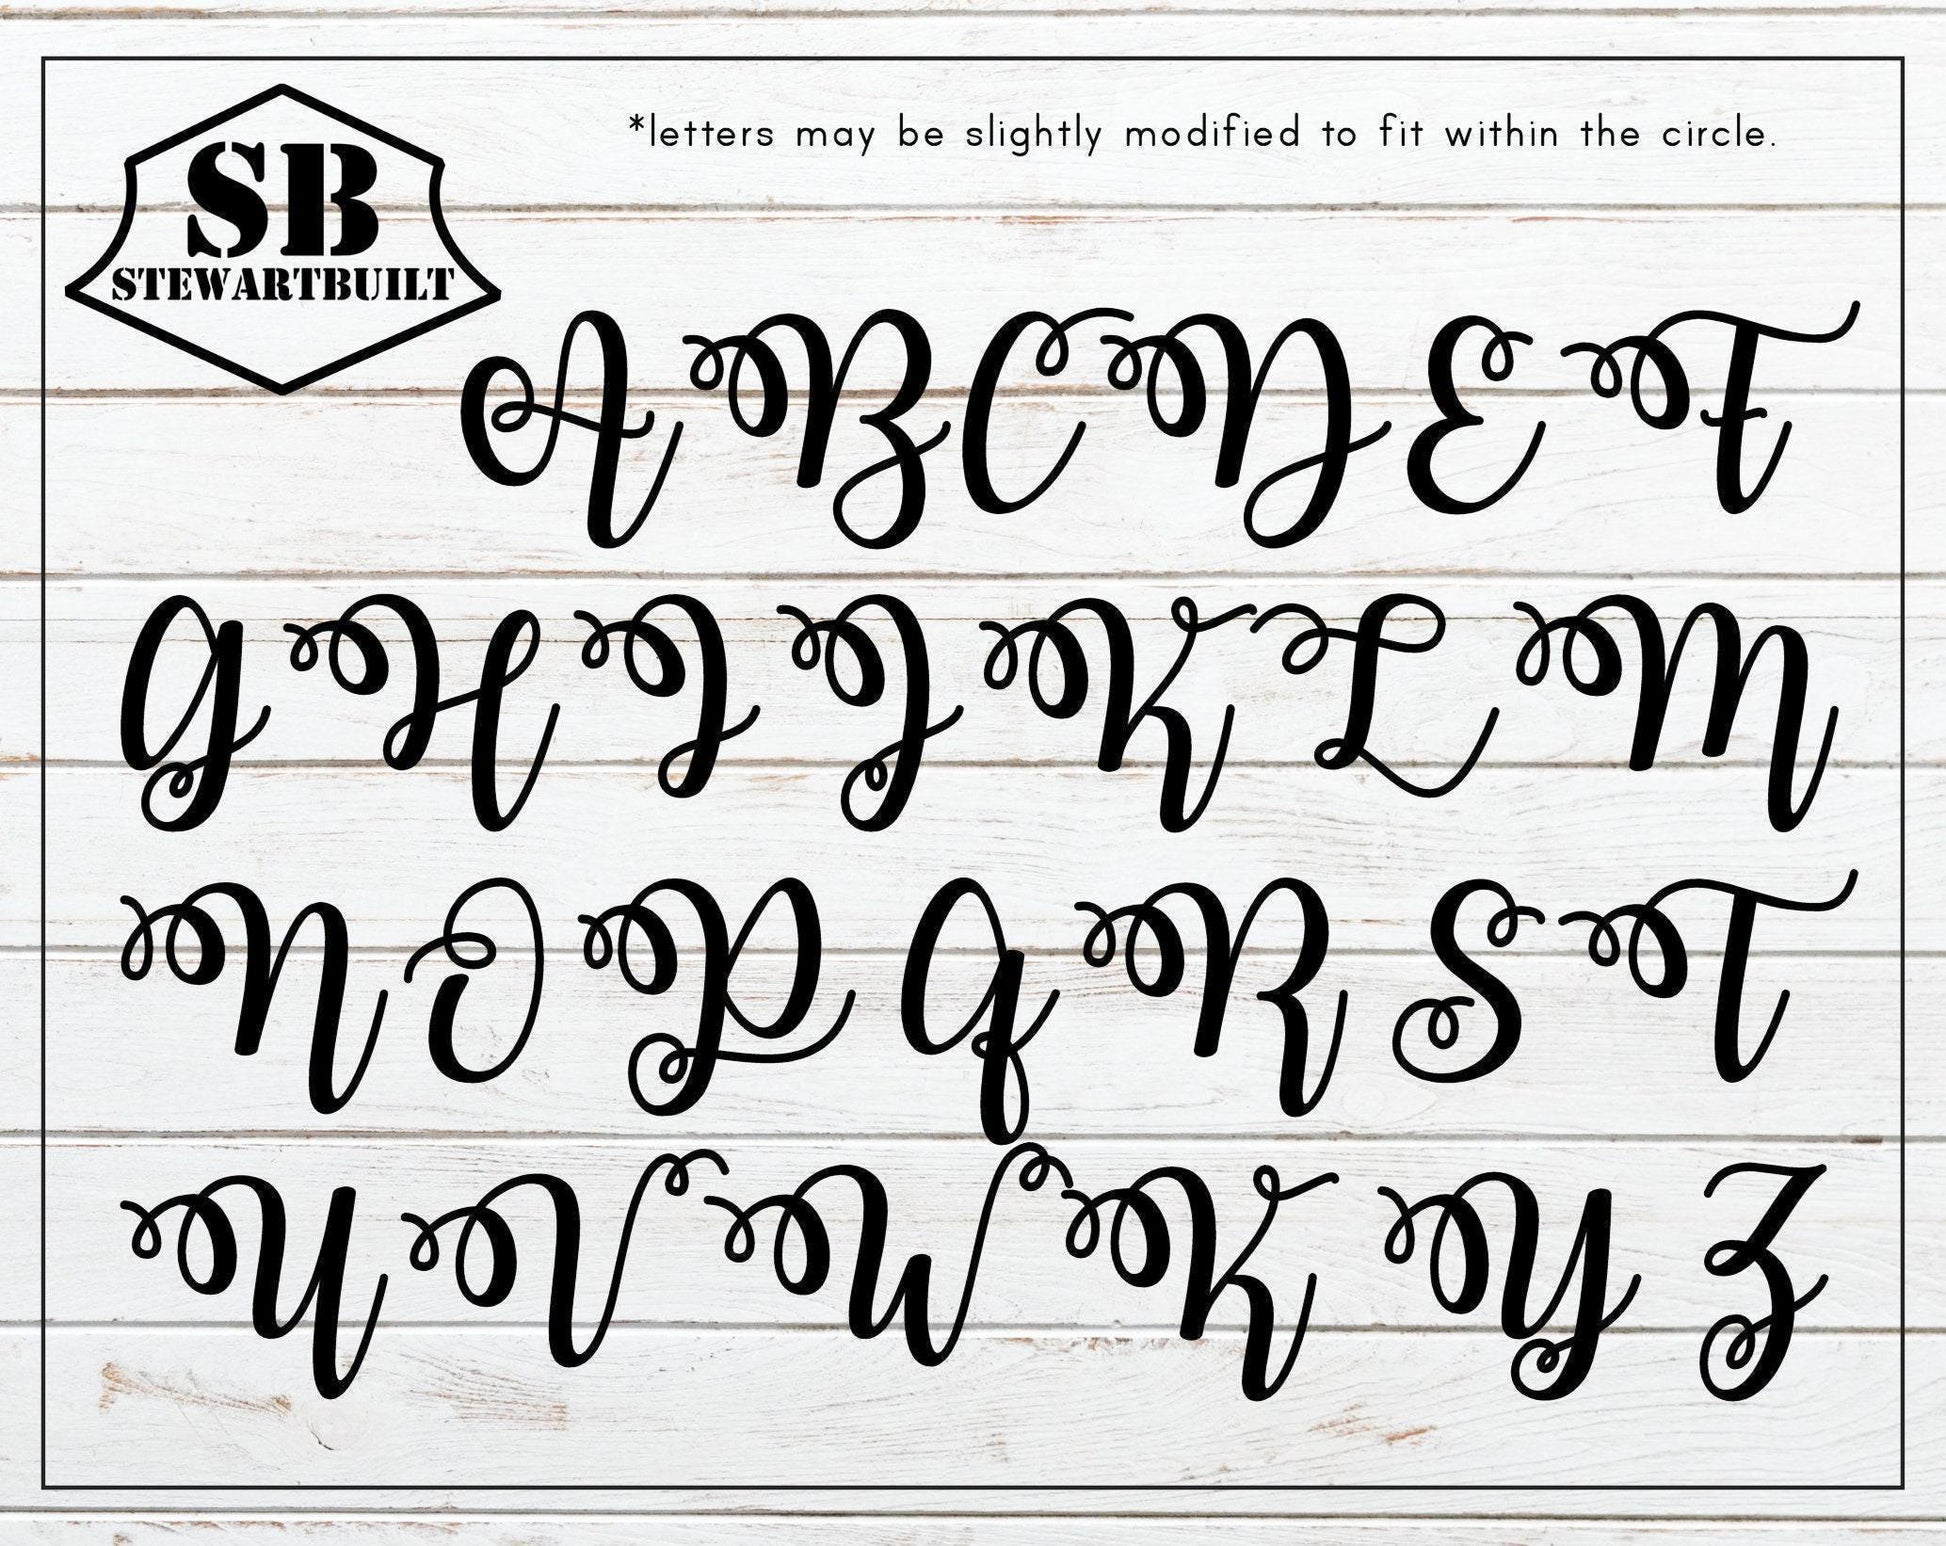 SB
STEWARTBUILT
*letters may be slightly modified to fit within the circle.
A B C D E F
G H I J K L M
N O P Q R S T
U V W K Y Z